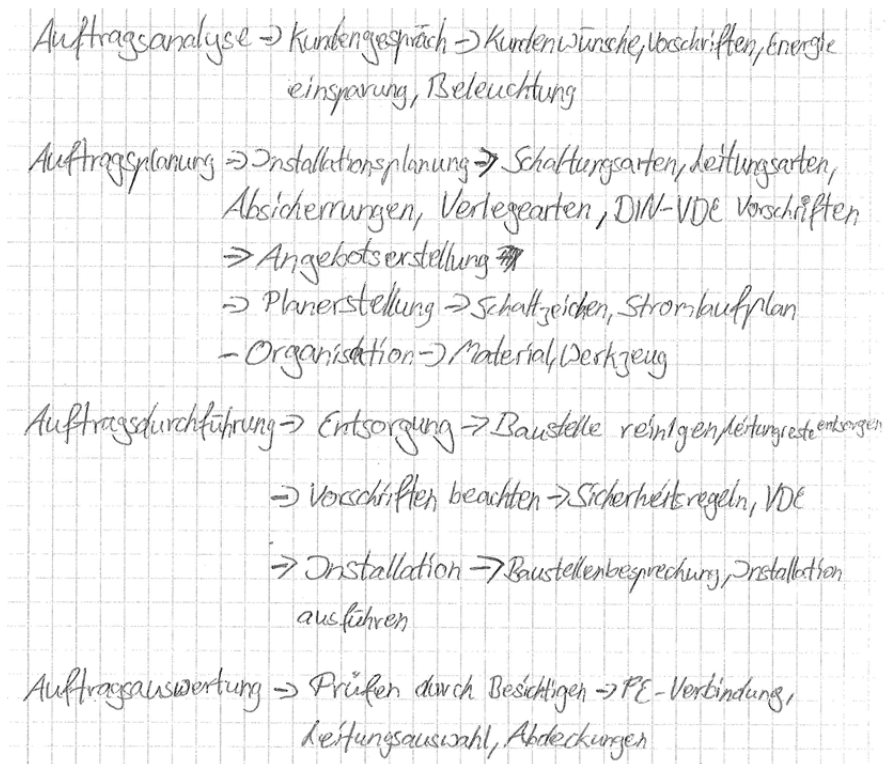 Auftragsanalyse → Kundengespräch → Kundenwünsche, Vorschriften, Energie
einsparung, Beleuchtung
Auftragsplanung → Installationsplanung → Schaltungsarten, Leitungsarten,
Absicherrungen, Verlegearten, DIN-VDE Vorschriften
→ Angebotserstellung
→ Planerstellung → Schaltzeichen, Stromlaufplan
- Organisation → Material, Werkzeug
Auftragsdurchführung → Entsorgung → Baustelle reinigen, Leitungreste entsorgen
→ Vorschriften beachten → Sicherheitsregeln, VDE
→ Installation → Baustellenbesprechung, Installation
ausführen
Auftragsauswertung → Prüfen durch Besichtigen → PE-Verbindung,
Leitungsauswahl, Abdeckungen